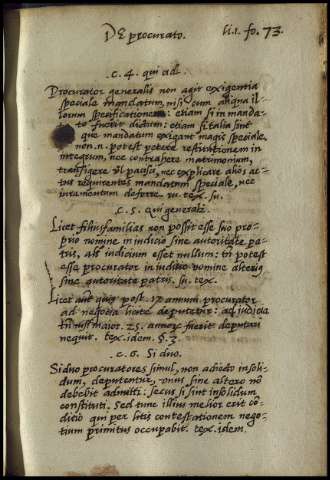 DE procurato.
li.1. fo. 73.
.c. 4. qui ad.
Procurator generalis non agit exigentia
speciale mandatum, nisi cum aliqua il-
lorum specificatione: etiam si in manda-
to fuerit dictum: etiam si talia sint
que mandatum exigant magis speciale.
non.n. potest petere restitutionem in
integrum, nec contrahere matrimonium,
transigere vl pacisci, nec explicare alios ac-
tus requirentes mandatum speciale, nec
iuramentum deferre. tex. su.
.c. 5. qui generali.
Licet filiusfamilias non possit esse suo pro-
prio nomine in iudicio sine autoritate pa-
tris, als iudicium esset nullum: tn potest
esse procurator in iudicio nomine alterius
sine autoritate patris. su. tex.
Licet aut quis post .17. annum procurator
ad negocia licite deputetur: ad iudicia
tn nisi maior .25. annor. fuerit deputari
nequit. tex. idem. §. 3.
.c. 6. Si duo.
Si duo procuratores simul, non adiecto insoli-
dum, deputentur, vnus sine altero nō
debebit admitti: secus si sint insolidum
constituti. Sed tunc illius melior erit cō-
ditio qui per litis contestationem nego-
tium primitus occupabit. tex. idem.